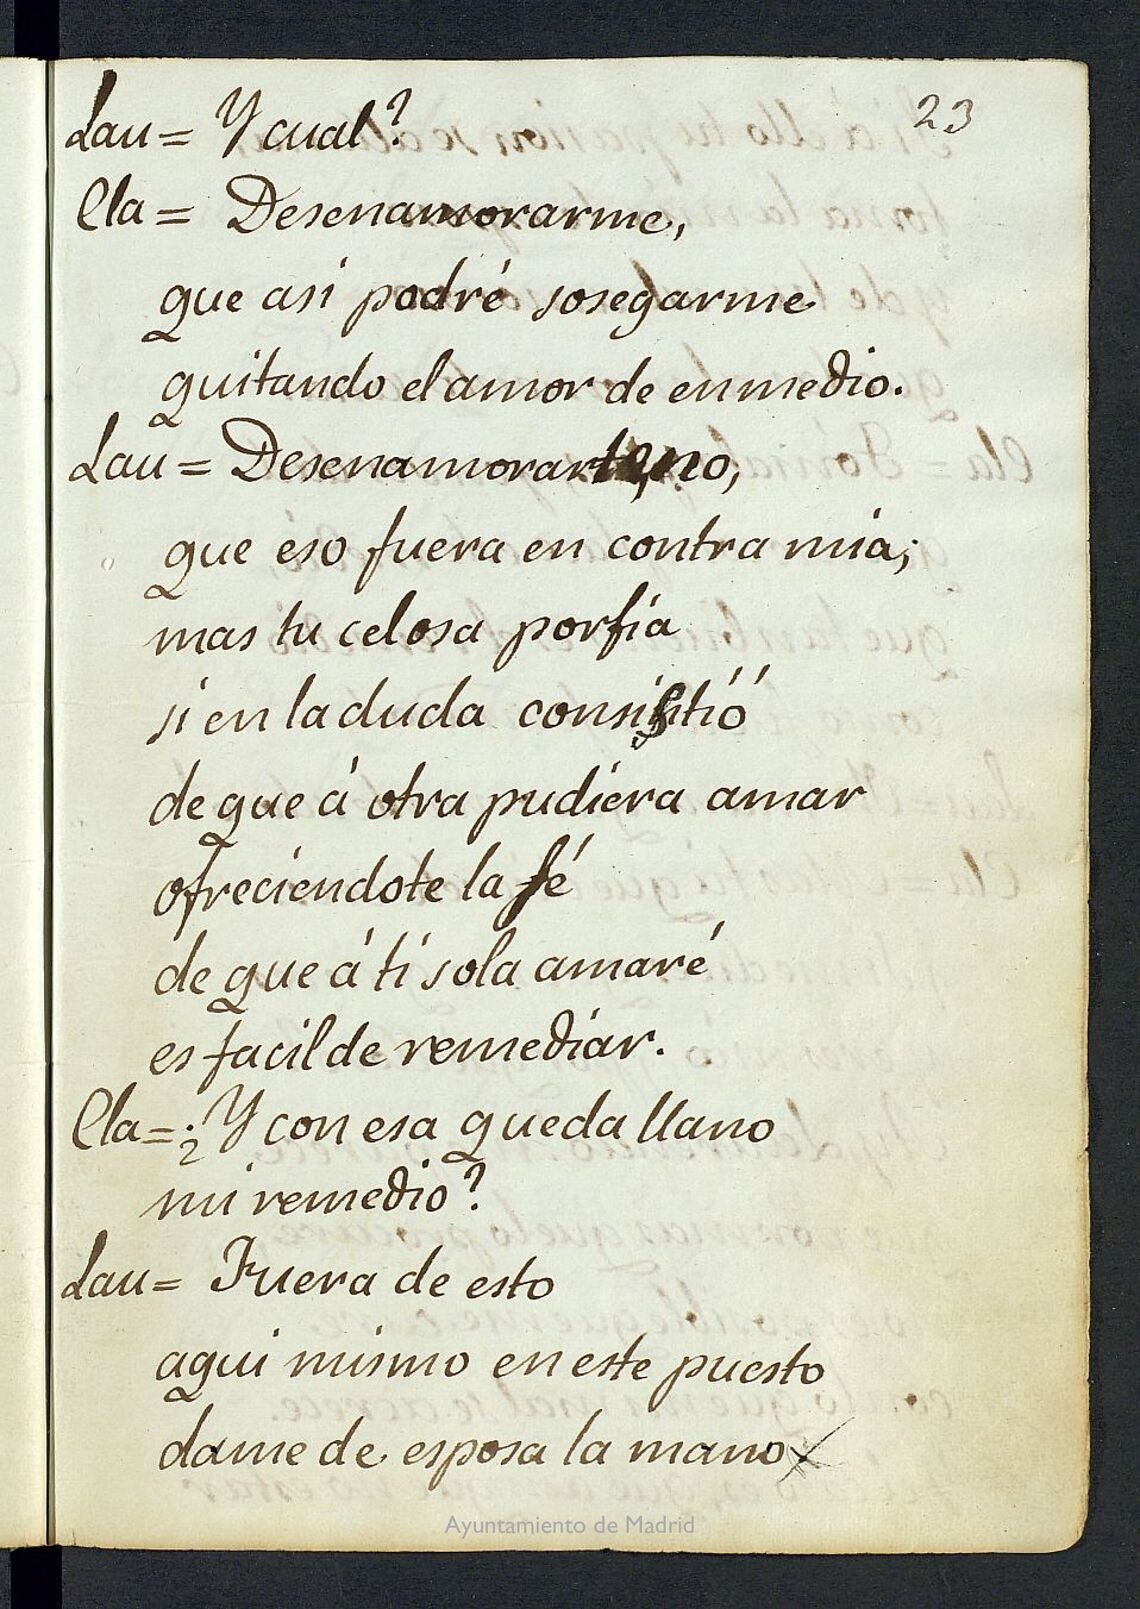 23
Lau = Y cual?
Cla = Desenamorarme,
que asi podré sosegarme
quitando el amor de enmedio.
Lau = Desenamorarte, no,
que eso fuera en contra mia;
mas tu celosa porfia
si en la duda consistió
de que á otra pudiera amar
ofreciendote la fé
de que á ti sola amaré
es facil de remediar.
Cla = ¿Y con esa queda llano
mi remedio?
Lau = Fuera de esto
aqui mismo en este puesto
dame de esposa la mano
Ayuntamiento de Madrid